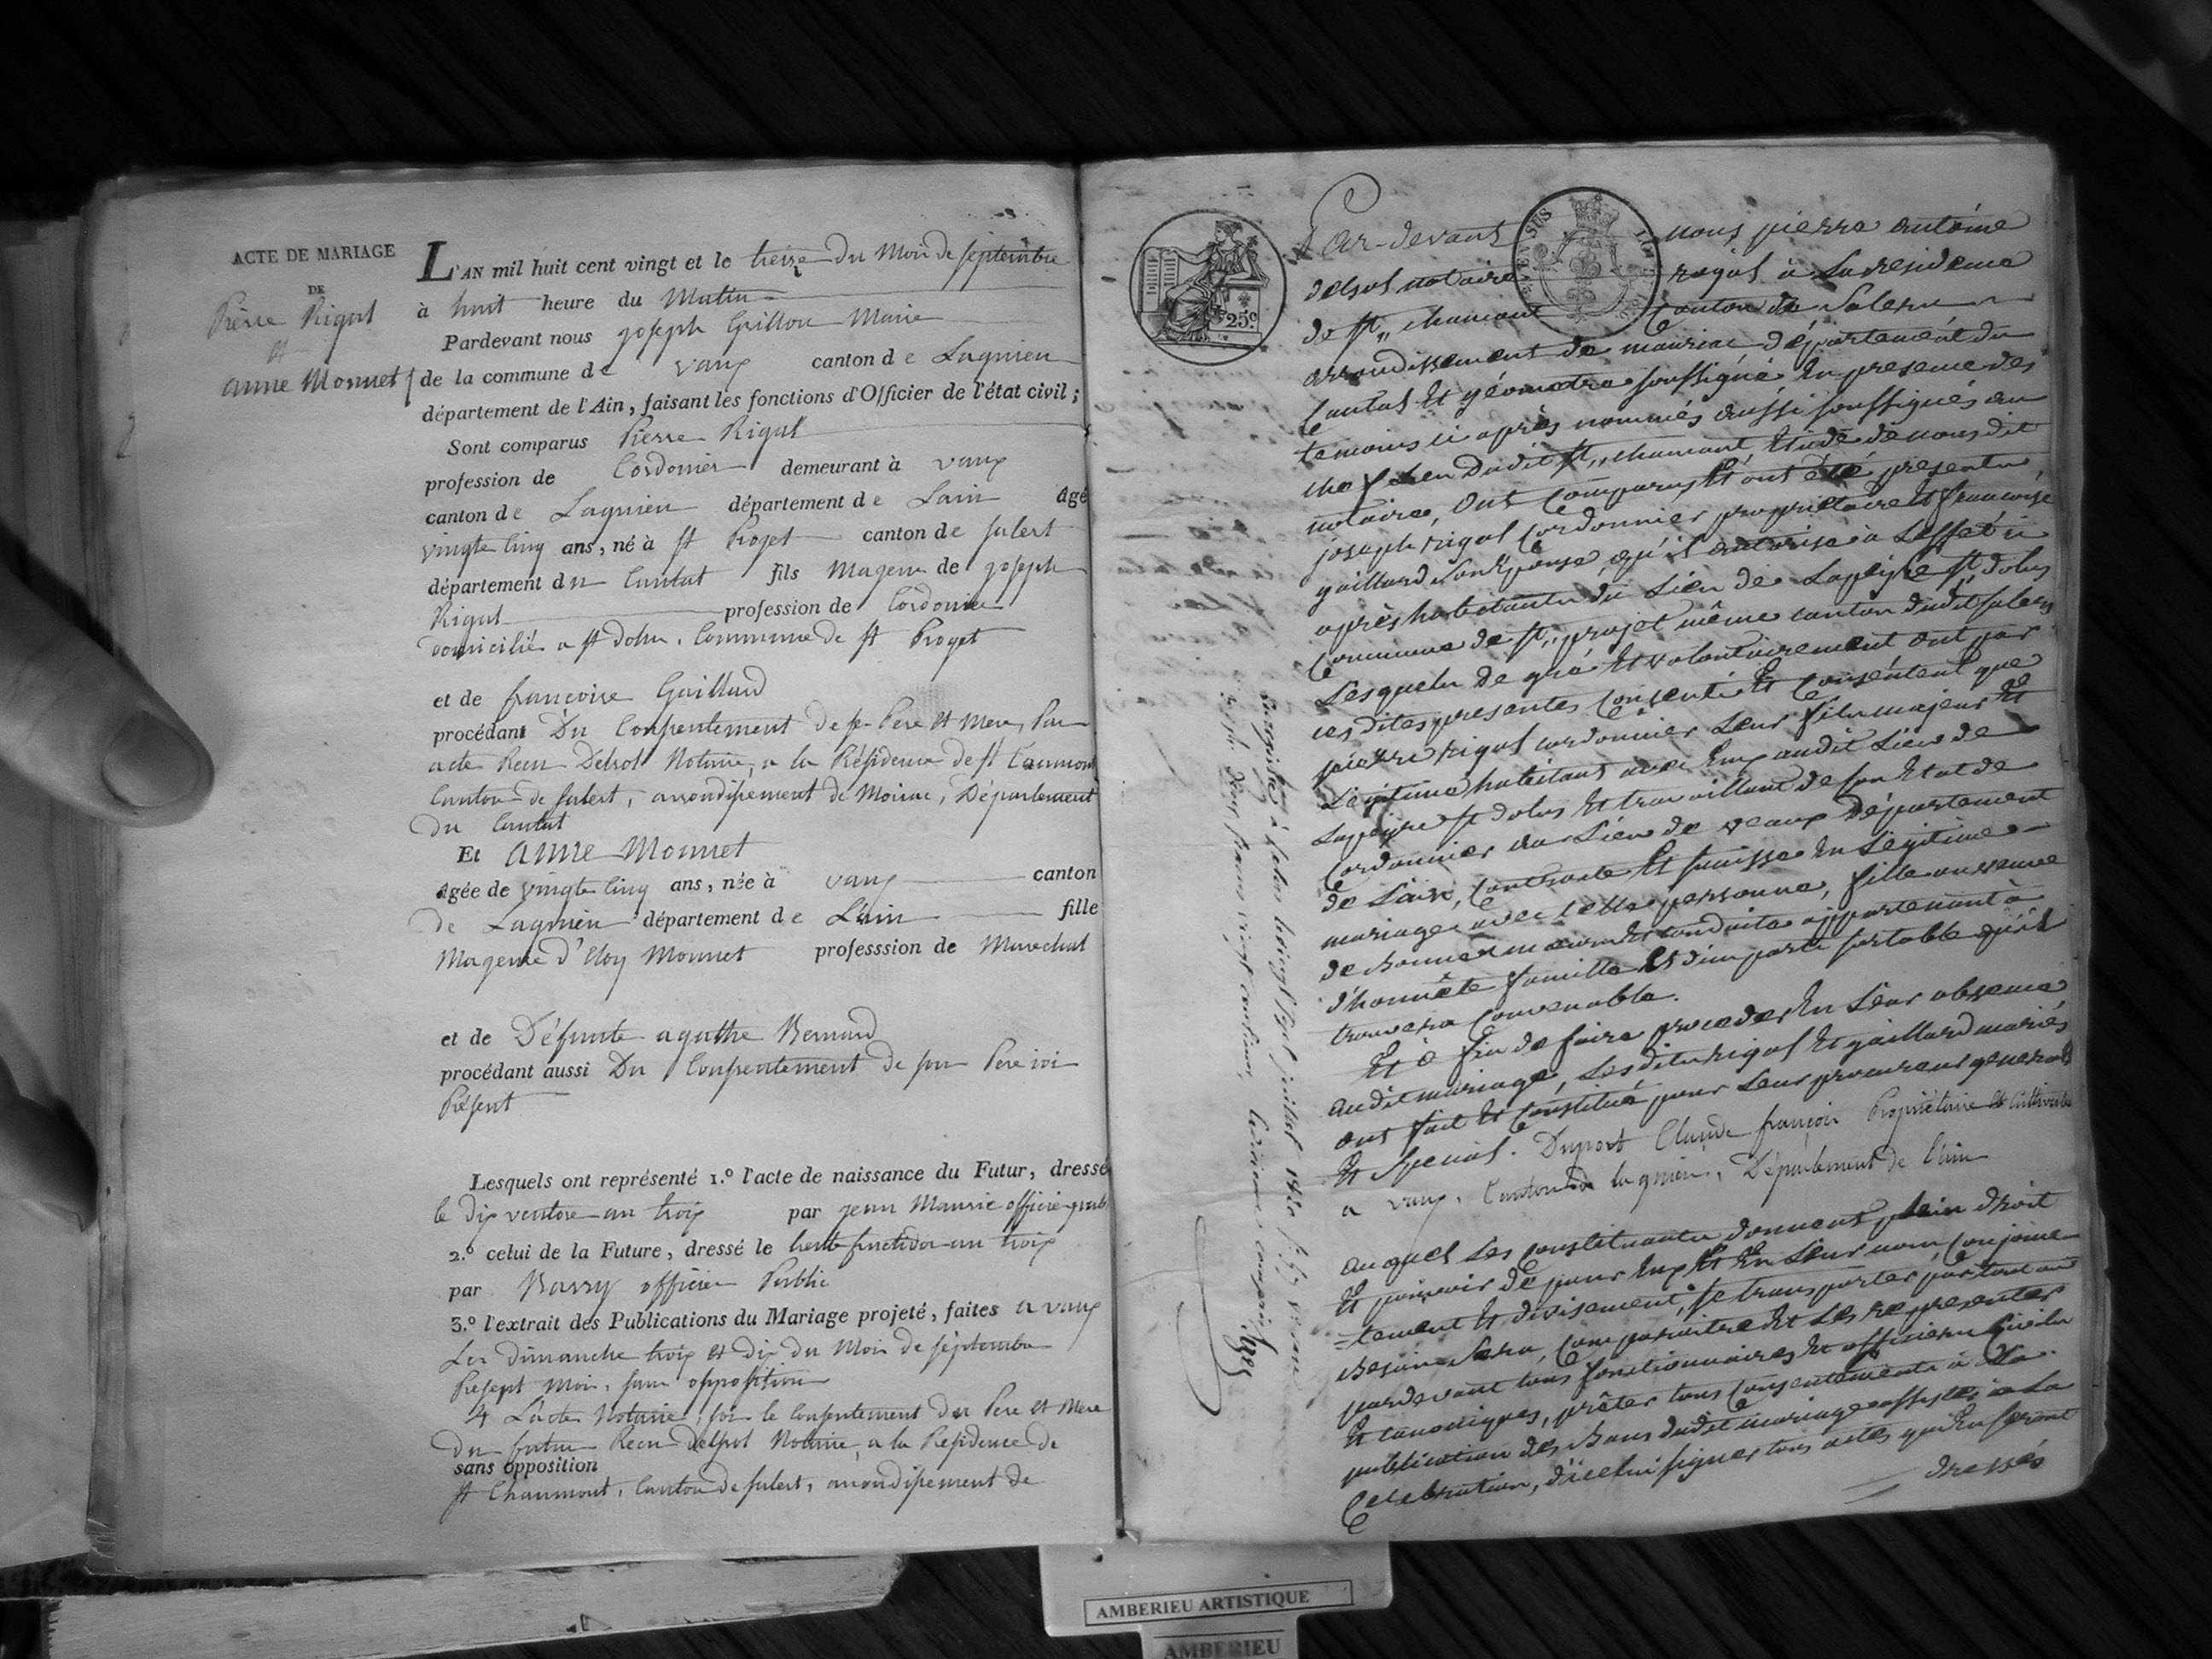 ACTE DE MARIAGE
DE
Pierre Rigal
et
anne Monnet
L'AN mil huit cent vingt et le treize du Mois de septembre
à huit heure du Matin
Pardevant nous joseph Grillon Maire
de la commune de vaux canton de Lagnieu
département de l'Ain, faisant les fonctions d'Officier de l'état civil ;
Sont comparus Pierre Rigal
profession de Cordonier demeurant à vaux
canton de Lagnieu département de Lain agé
vingte cinq ans, né à st Proget canton de salert
département du Cantal fils Mageur de joseph
Rigal profession de Cordonier
domicilié a st dolus, Commune de st Proget
et de francoise Gaillard
procédant Du Consentement de se Pere et Mere, Par
acte Recu Delsol Notaire, a la Résidence de st Caumont
Canton de salert, arrondisement de Moriac, Département
du Cantal
Et anne Monnet
agée de vingte cinq ans, née à vaux canton
de Lagnieu département de L'ain fille
Mageure d'Eloy Monnet professsion de Marechal
et de Défunte agathe Bernard
procédant aussi Du Consentement de son Pere ici
Présent
Lesquels ont représenté 1.º l'acte de naissance du Futur, dressé
le dix ventose an troix par jean Mauric officier publ
2.º celui de la Future, dressé le trente fructidor an troix
par Barry officier Public
3.º l'extrait des Publications du Mariage projeté, faites a vaux
Les dimanche troix et dix du Mois de septembre
Présept Mois, sans opposition
4 L'acte Notarié, for le Consentement du Pere et Mere
du futur Recu Delsol Notaire, a la Résidence de
sans opposition
st Chaumont, Canton de salert, arrondisement de
25c
Par-devant nous pierre antoine
delsol notaire royal à la residence
de st,, chamant Canton de Salers
arrondissement de mauriac département du
Cantal et géometre soussigné en presence des
temoins ci après nommés aussi soussignés au
chef lieu dudit st,, chamant, étude de nous dit
notaire, ont comparu et ont été presents
joseph rigal Cordonnier propriétaire et francoise
gaillard son Epouse, qu'il autorise à l'effet ci
après habitants du lieu de Lapeyre st dolus
Commune de st,, projet même canton dudit salers
Lesquels de gré et volontairement ont par
ces dites presentes Consenti et Consentent que
pierre rigal cordonnier leur fils majeur et
Légitime habitant avec Eux audit lieu de
Lapeyre st dolus et travaillant de son Etat de
Cordonnier au lieu de veaux Département
de L'ain, Contracte et s'unisse en Légitime
mariage avec telle personne, fille ou veuve
de bonnes mœurs et conduite appartenant à
d'honnête famille et d'un parti sortable qu'il
trouvera Convenable.
Et à fin de faire proceder en leur absence
audit mariage, Lesdits rigal et gaillard mariés
ont fait et Constitué pour leur procureur general
et special. Duport Claude françois Propriétaire et Cultivateur
a vaux, Canton de lagnieu, Département de l'ain
auquel les Constituants donnent plein droit
et pouvoir de pour Eux et En leur nom, Conjoine
-tement et divisement, se transporter partout ou
Besoin sera, Comparoitre et Les representer
pardevant tous fonctionnaires et officiers Civils
et canoniques, prêter tous Consentements à la
publication des Bans dudit mariage assister à la
Célébration, d'icelui signer tous actes qui En seront
dressés
AMBERIEU ARTISTIQUE
AMBERIEU